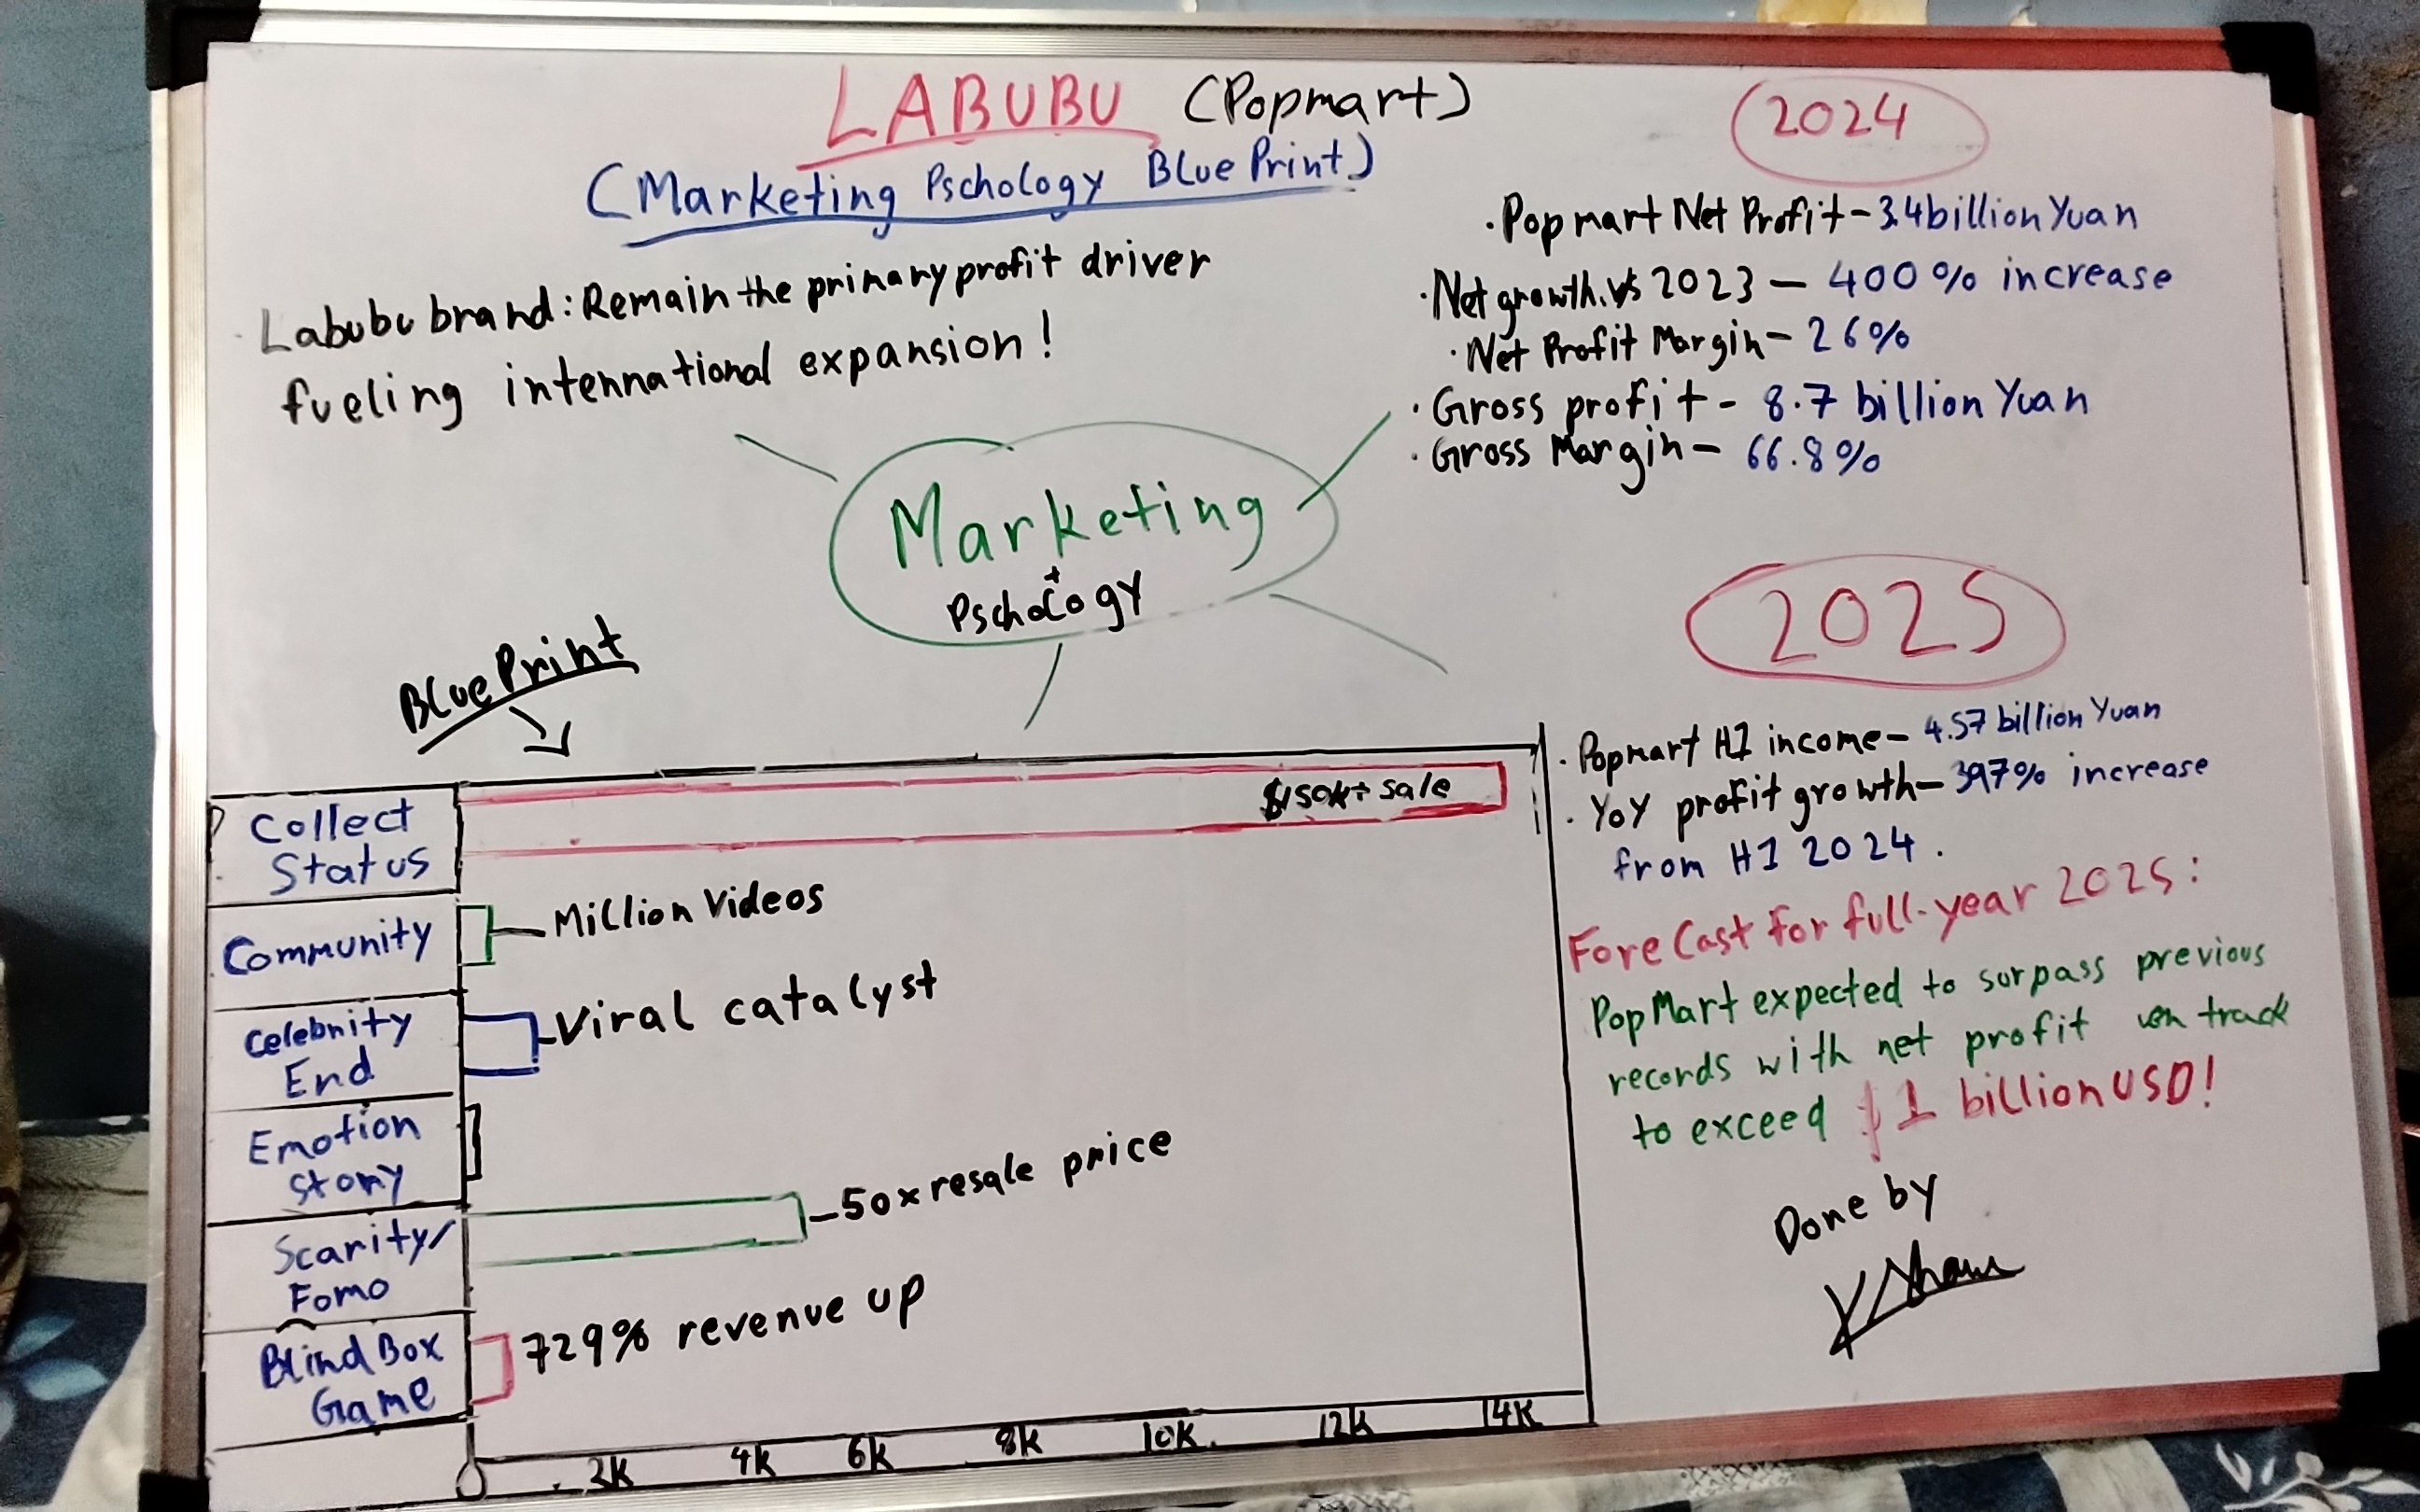 LABUBU (Popmart)
(Marketing Pschology BluePrint)
Labubu brand: Remain the primary profit driver
fueling international expansion!
2024
· Popmart Net Profit - 3.4 billion Yuan
· Net growth vs 2023 - 400% increase
· Net Profit Margin - 26%
· Gross profit - 8.7 billion Yuan
· Gross Margin - 66.8%
Marketing
+
Pschology
2025
· Popmart H1 income - 4.57 billion Yuan
· YoY profit growth - 397% increase
from H1 2024.
ForeCast For full-year 2025:
PopMart expected to surpass previous
records with net profit on track
to exceed $1 billion USD!
Done by
BluePrint
Collect
Status
$150k+ sale
Community
Million Videos
Celebrity
End
Viral catalyst
Emotion
story
Scarity/
Fomo
50x resale price
Blind Box
Game
729% revenue up
0 2K 4K 6K 8K 10K 12K 14K